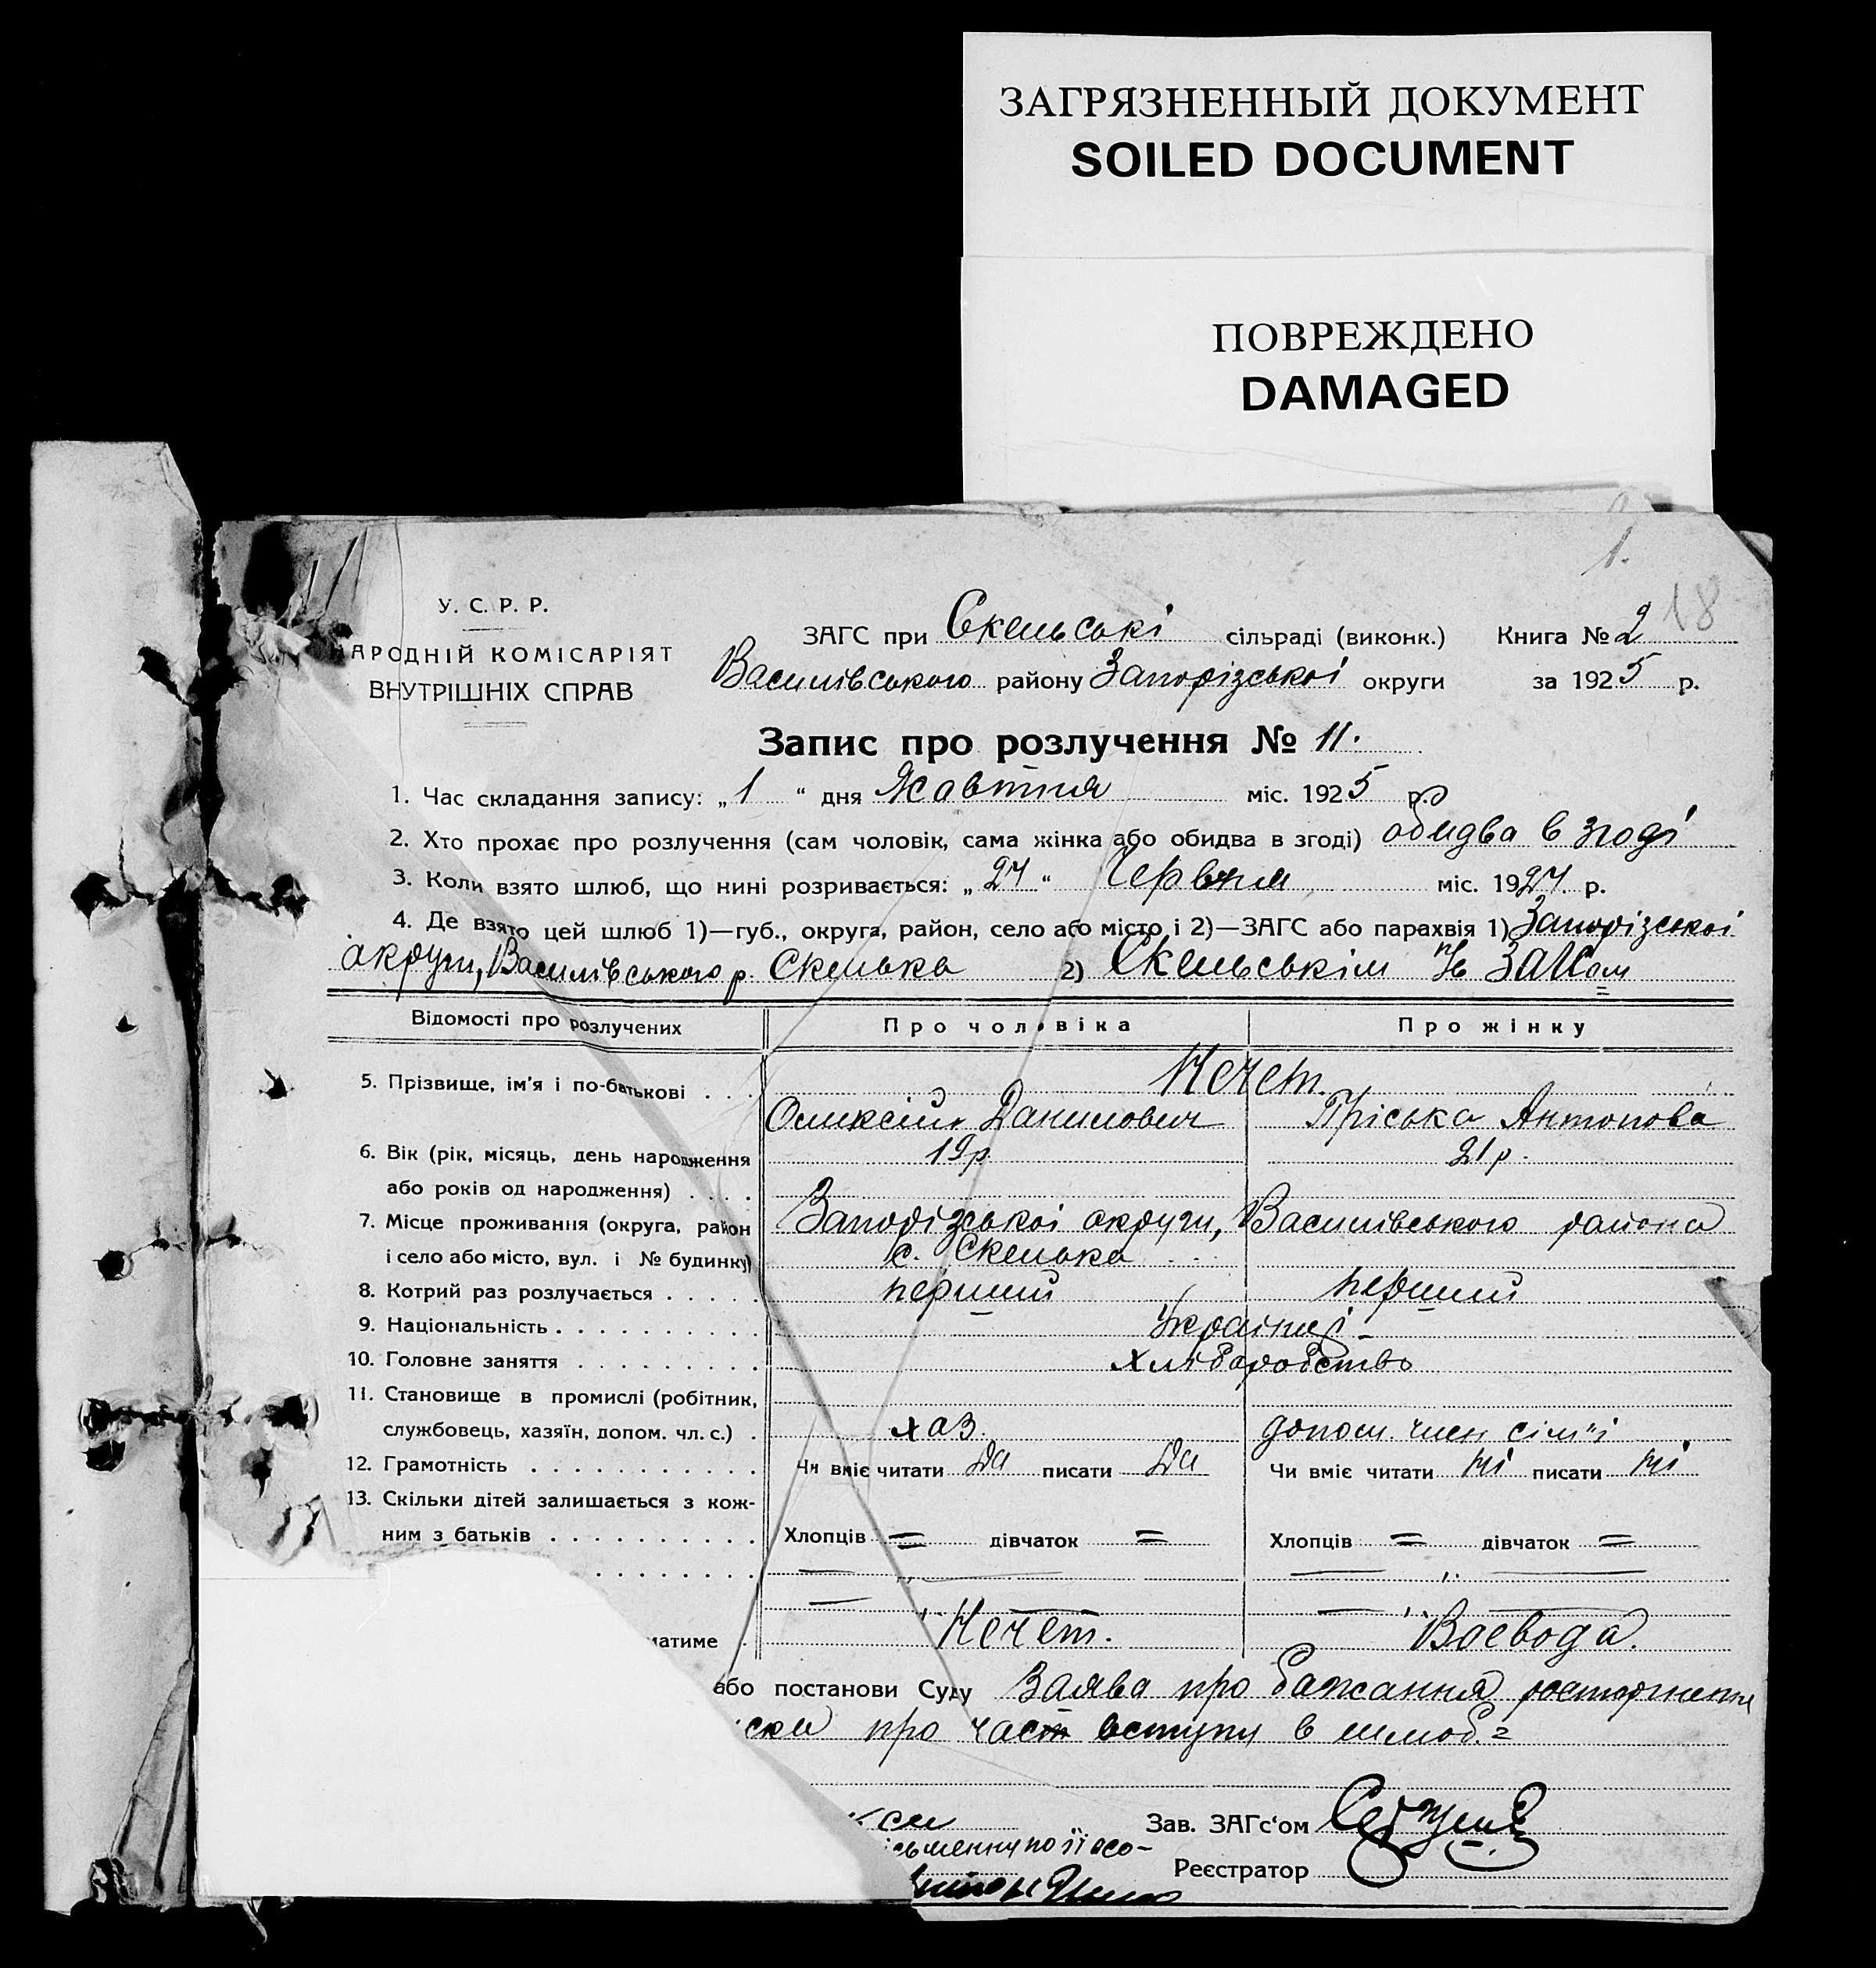 ЗАГРЯЗНЕННЫЙ ДОКУМЕНТ
SOILED DOCUMENT
ПОВРЕЖДЕНО
DAMAGED
1.
18
У. С. Р. Р.
АРОДНІЙ КОМІСАРІЯТ
ВНУТРІШНІХ СПРАВ
ЗАГС при Скельські сільраді (виконк.) Книга № 2
Василівського району Запорізської округи за 1925 р.
Запис про розлучення № 11.
1. Час складання запису: „1“ дня Жовтня міс. 1925 р.
2. Хто прохає про розлучення (сам чоловік, сама жінка або обидва в згоді) обидва в згоді
3. Коли взято шлюб, що нині розривається: „24“ Червня міс. 1924 р.
4. Де взято цей шлюб 1)—губ., округа, район, село або місто і 2)—ЗАГС або парахвія 1) Запорізської
округи, Василівського р. Скелька 2) Скельськім
Відомості про розлучених Про чоловіка Про жінку
5. Прізвище, ім'я і по-батькові . . . Кечет.
Оликсій Данилович Пріська Антонова
6. Вік (рік, місяць, день народження 19р. 21р.
або років од народження) . . . .
7. Місце проживання (округа, район Запорізської округи, Василівського района
і село або місто, вул. і № будинку) с. Скелька
8. Котрий раз розлучається . . . . . перший перший
9. Національність . . . . . . . . . . Українці
10. Головне заняття . . . . . . . . . хліборобство
11. Становище в промислі (робітник,
службовець, хазяїн, допом. чл. с.) . хаз. допом. член сім'ї
12. Грамотність . . . . . . . . . . . Чи вміє читати Да писати Да Чи вміє читати ні писати ні
13. Скільки дітей залишається з кож-
ним з батьків . . . . . . . . . . Хлопців = дівчаток = Хлопців = дівчаток =
. . . . . . . . — „ — — „ —
— „ — — „ —
матиме . Кечет. Воевода.
або постанови Суду Заява про бажання росторження
ска про час вступу в шлюб.
Зав. ЗАГс'ом
сьменну по її осо-
Реєстратор